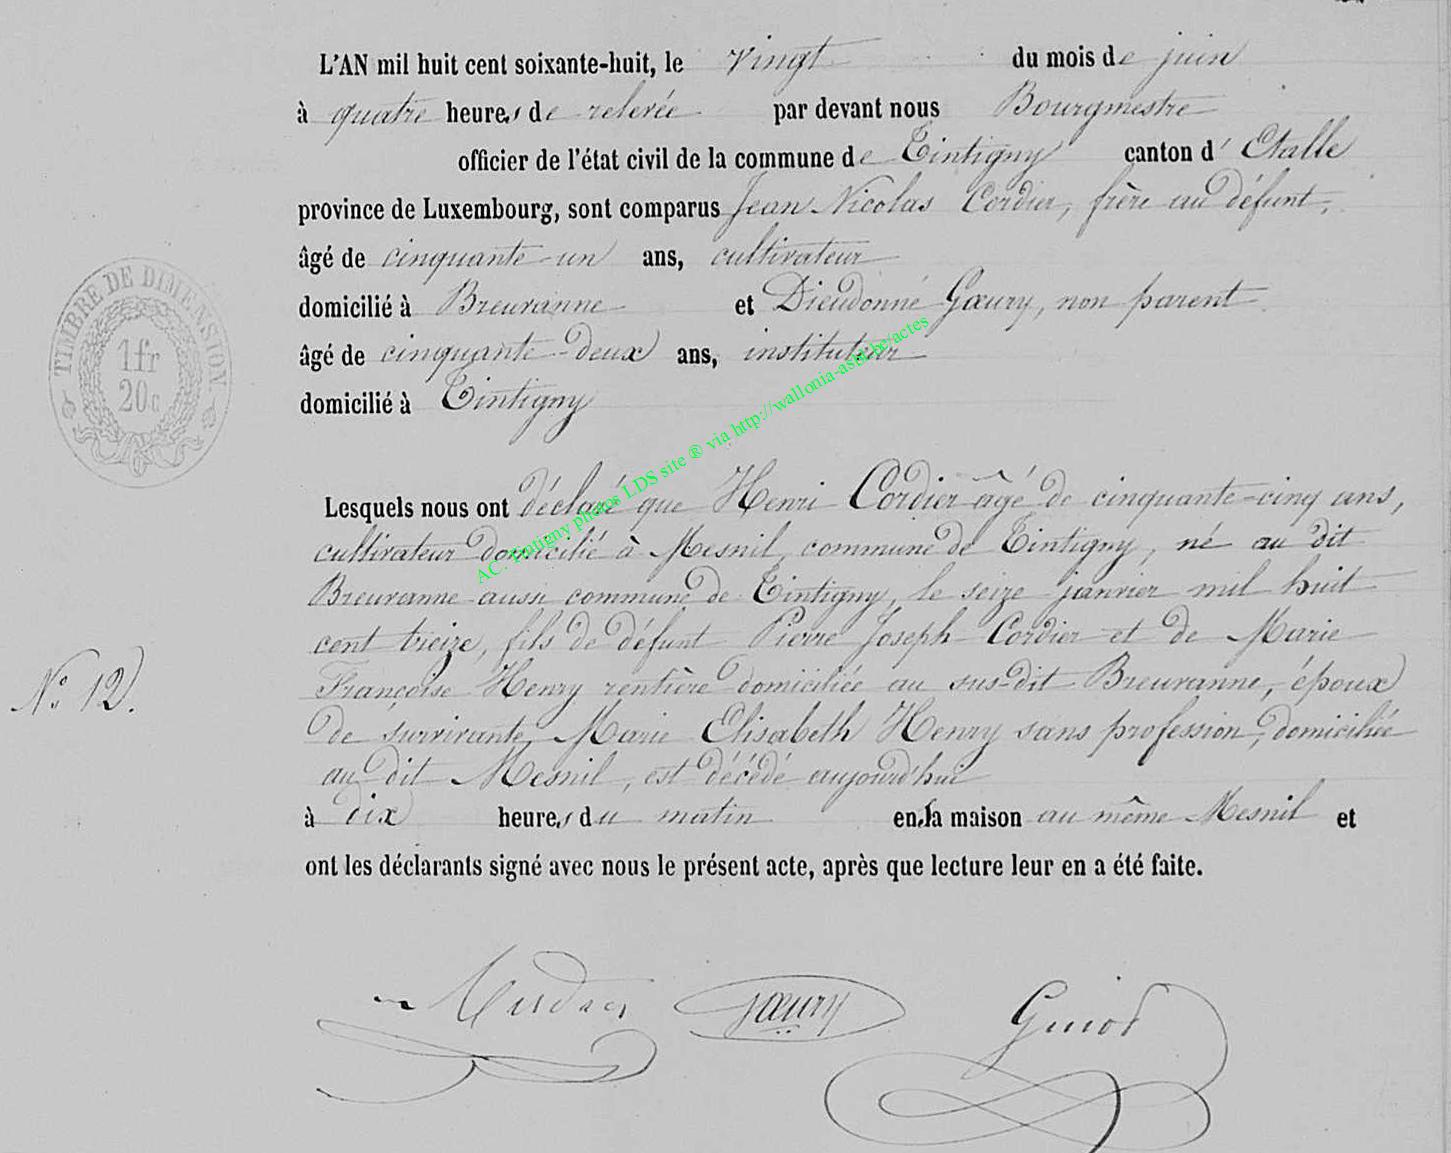 L'AN mil huit cent soixante-huit, le vingt du mois de juin
à quatre heures de relevée par devant nous Bourgmestre
officier de l'état civil de la commune de Tintigny canton d'Etalle
province de Luxembourg, sont comparus Jean Nicolas Cordier, frère au défunt,
âgé de cinquante-un ans, cultivateur
domicilié à Breuvanne et Dieudonné Gœury, non parent
âgé de cinquante-deux ans, instituteur
domicilié à Tintigny
TIMBRE DE DIMENSION
1fr
20c
AC. Tintigny photos LDS site ® via http://wallonia-asbl.be/actes
Lesquels nous ont déclaré que Henri Cordier âgé de cinquante-cinq ans,
cultivateur domicilié à Mesnil, commune de Tintigny, né au dit
Breuvanne aussi commune de Tintigny, le seize janvier mil huit
cent treize, fils de défunt Pierre Joseph Cordier et de Marie
Françoise Henry rentière domiciliée au sus-dit Breuvanne, époux
de survivante Marie Elisabeth Henry sans profession, domiciliée
au dit Mesnil, est décédé aujourd'hui
N° 12.
à dix heures du matin en sa maison au même Mesnil et
ont les déclarants signé avec nous le présent acte, après que lecture leur en a été faite.
Gœury Guiot